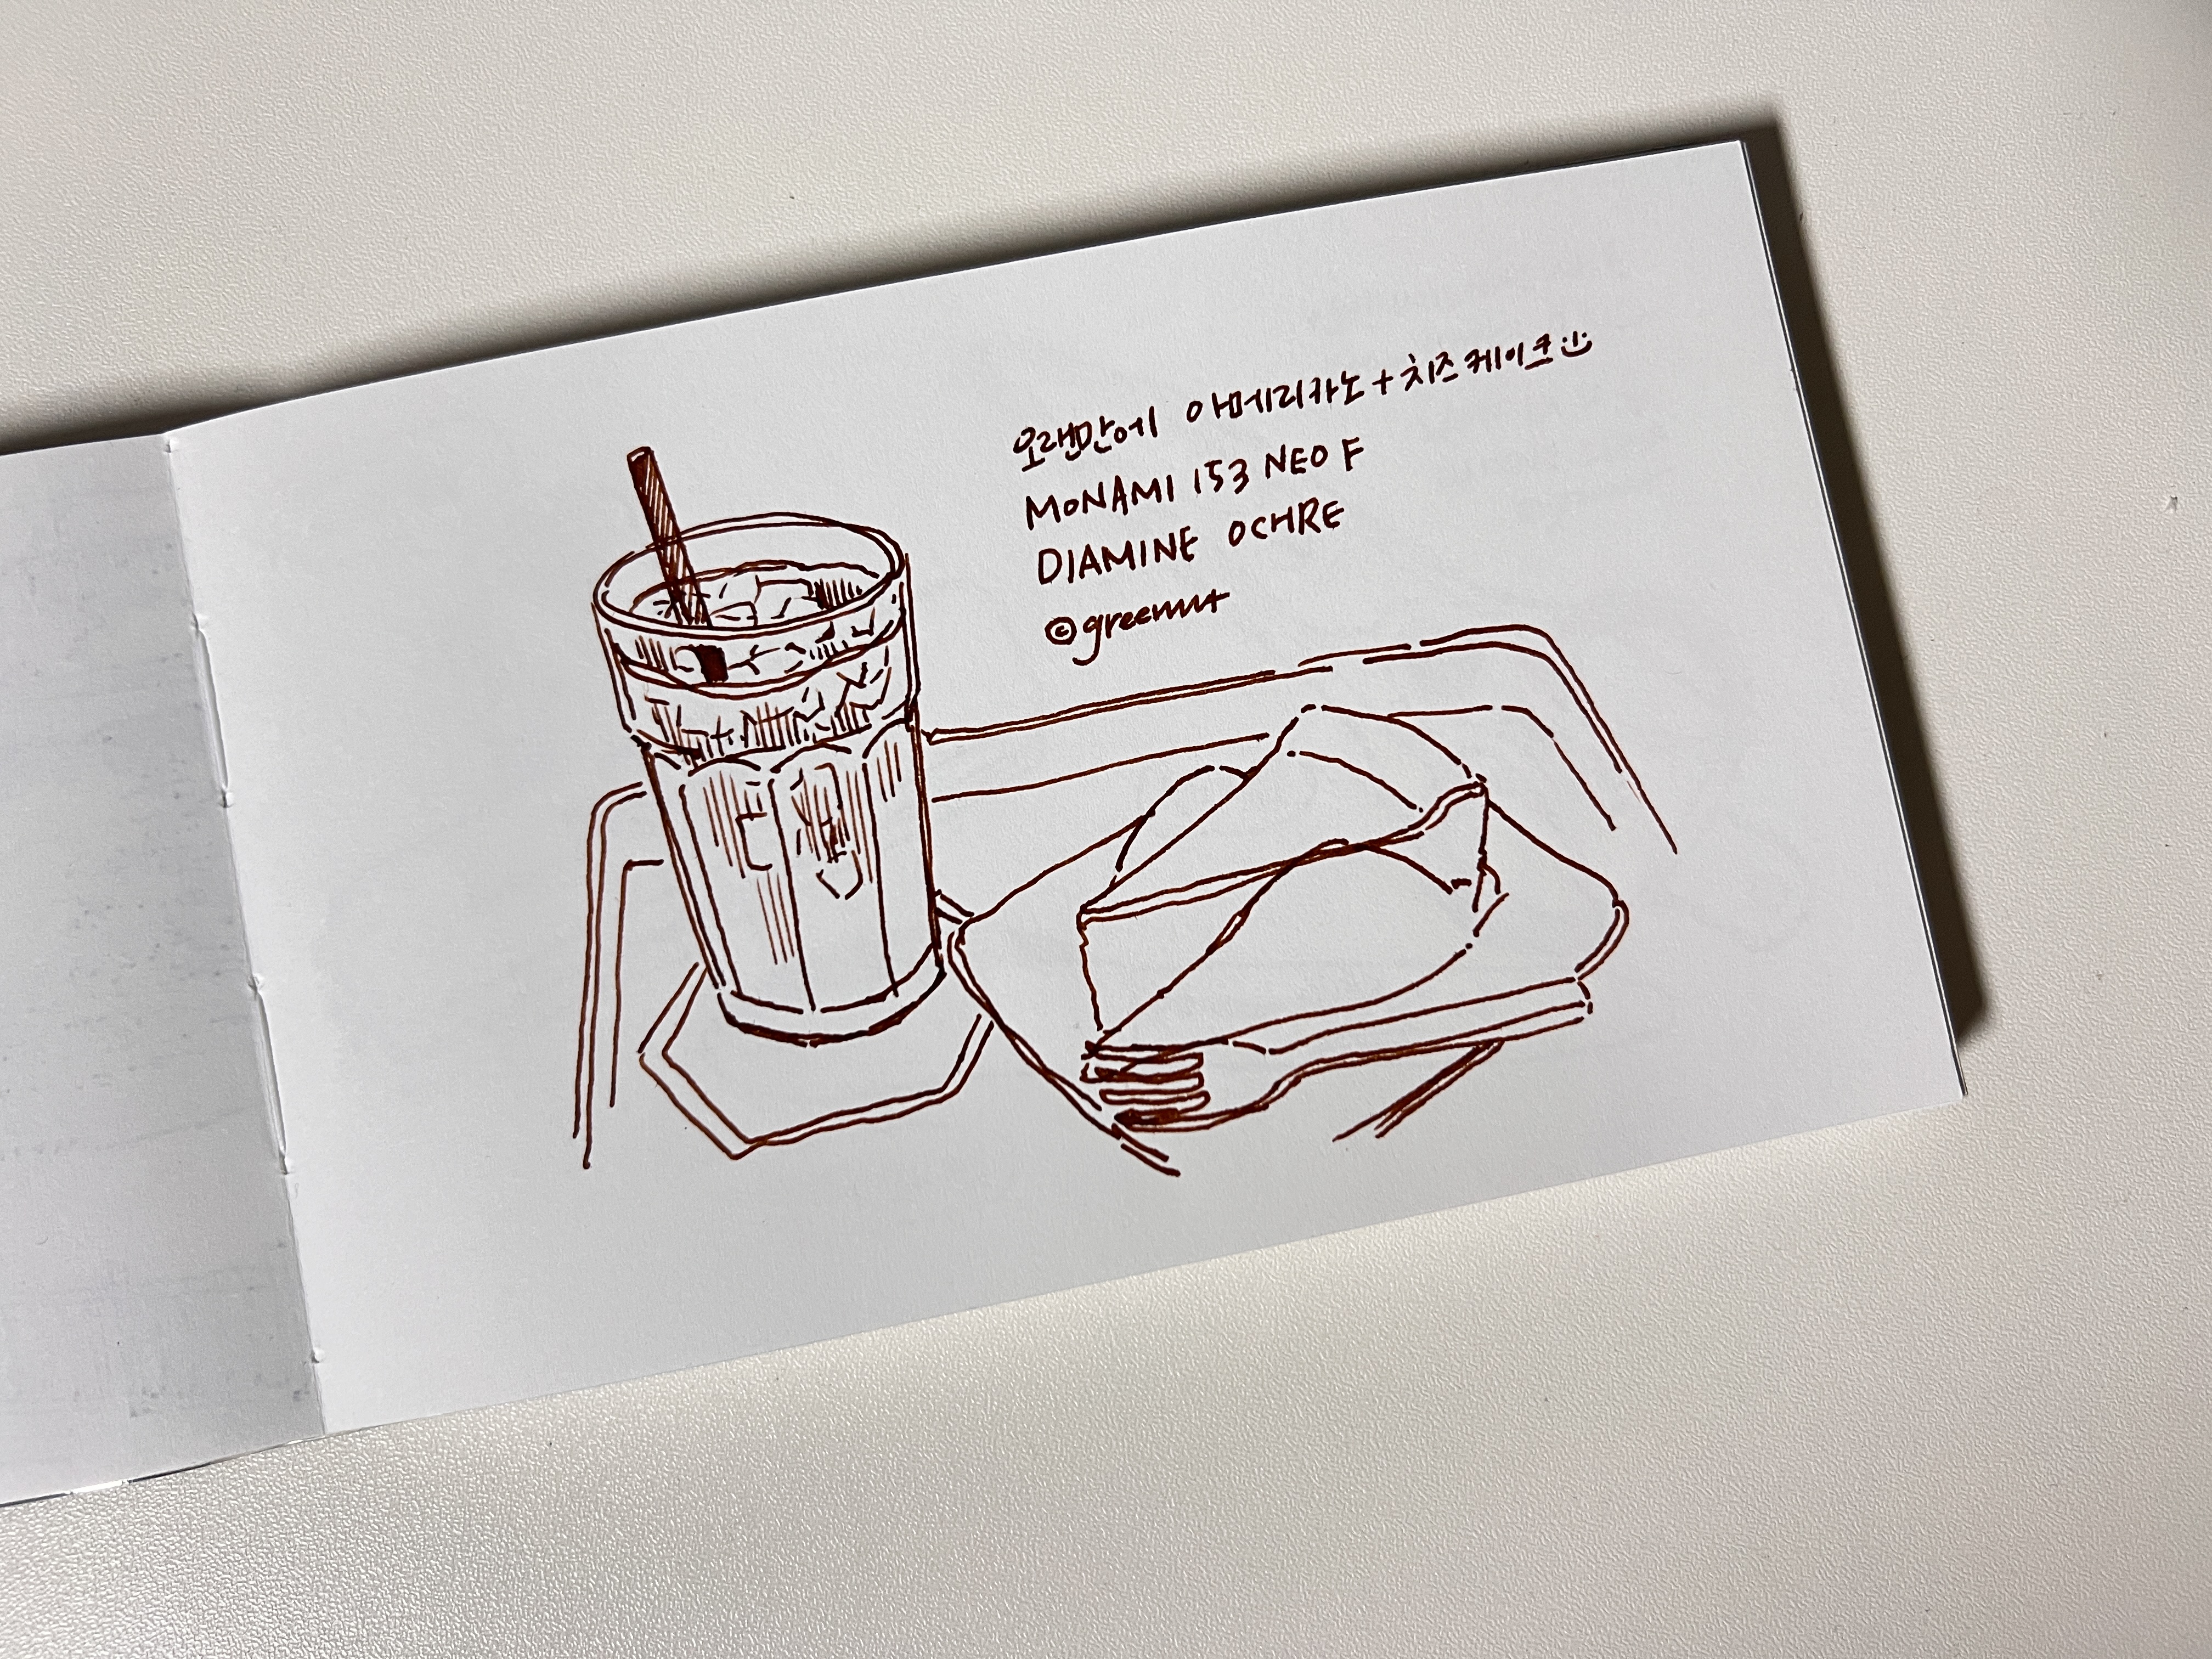 오랜만에 아메리카노+치즈케이크
MONAMI 153 NEO F
DIAMINE OCHRE